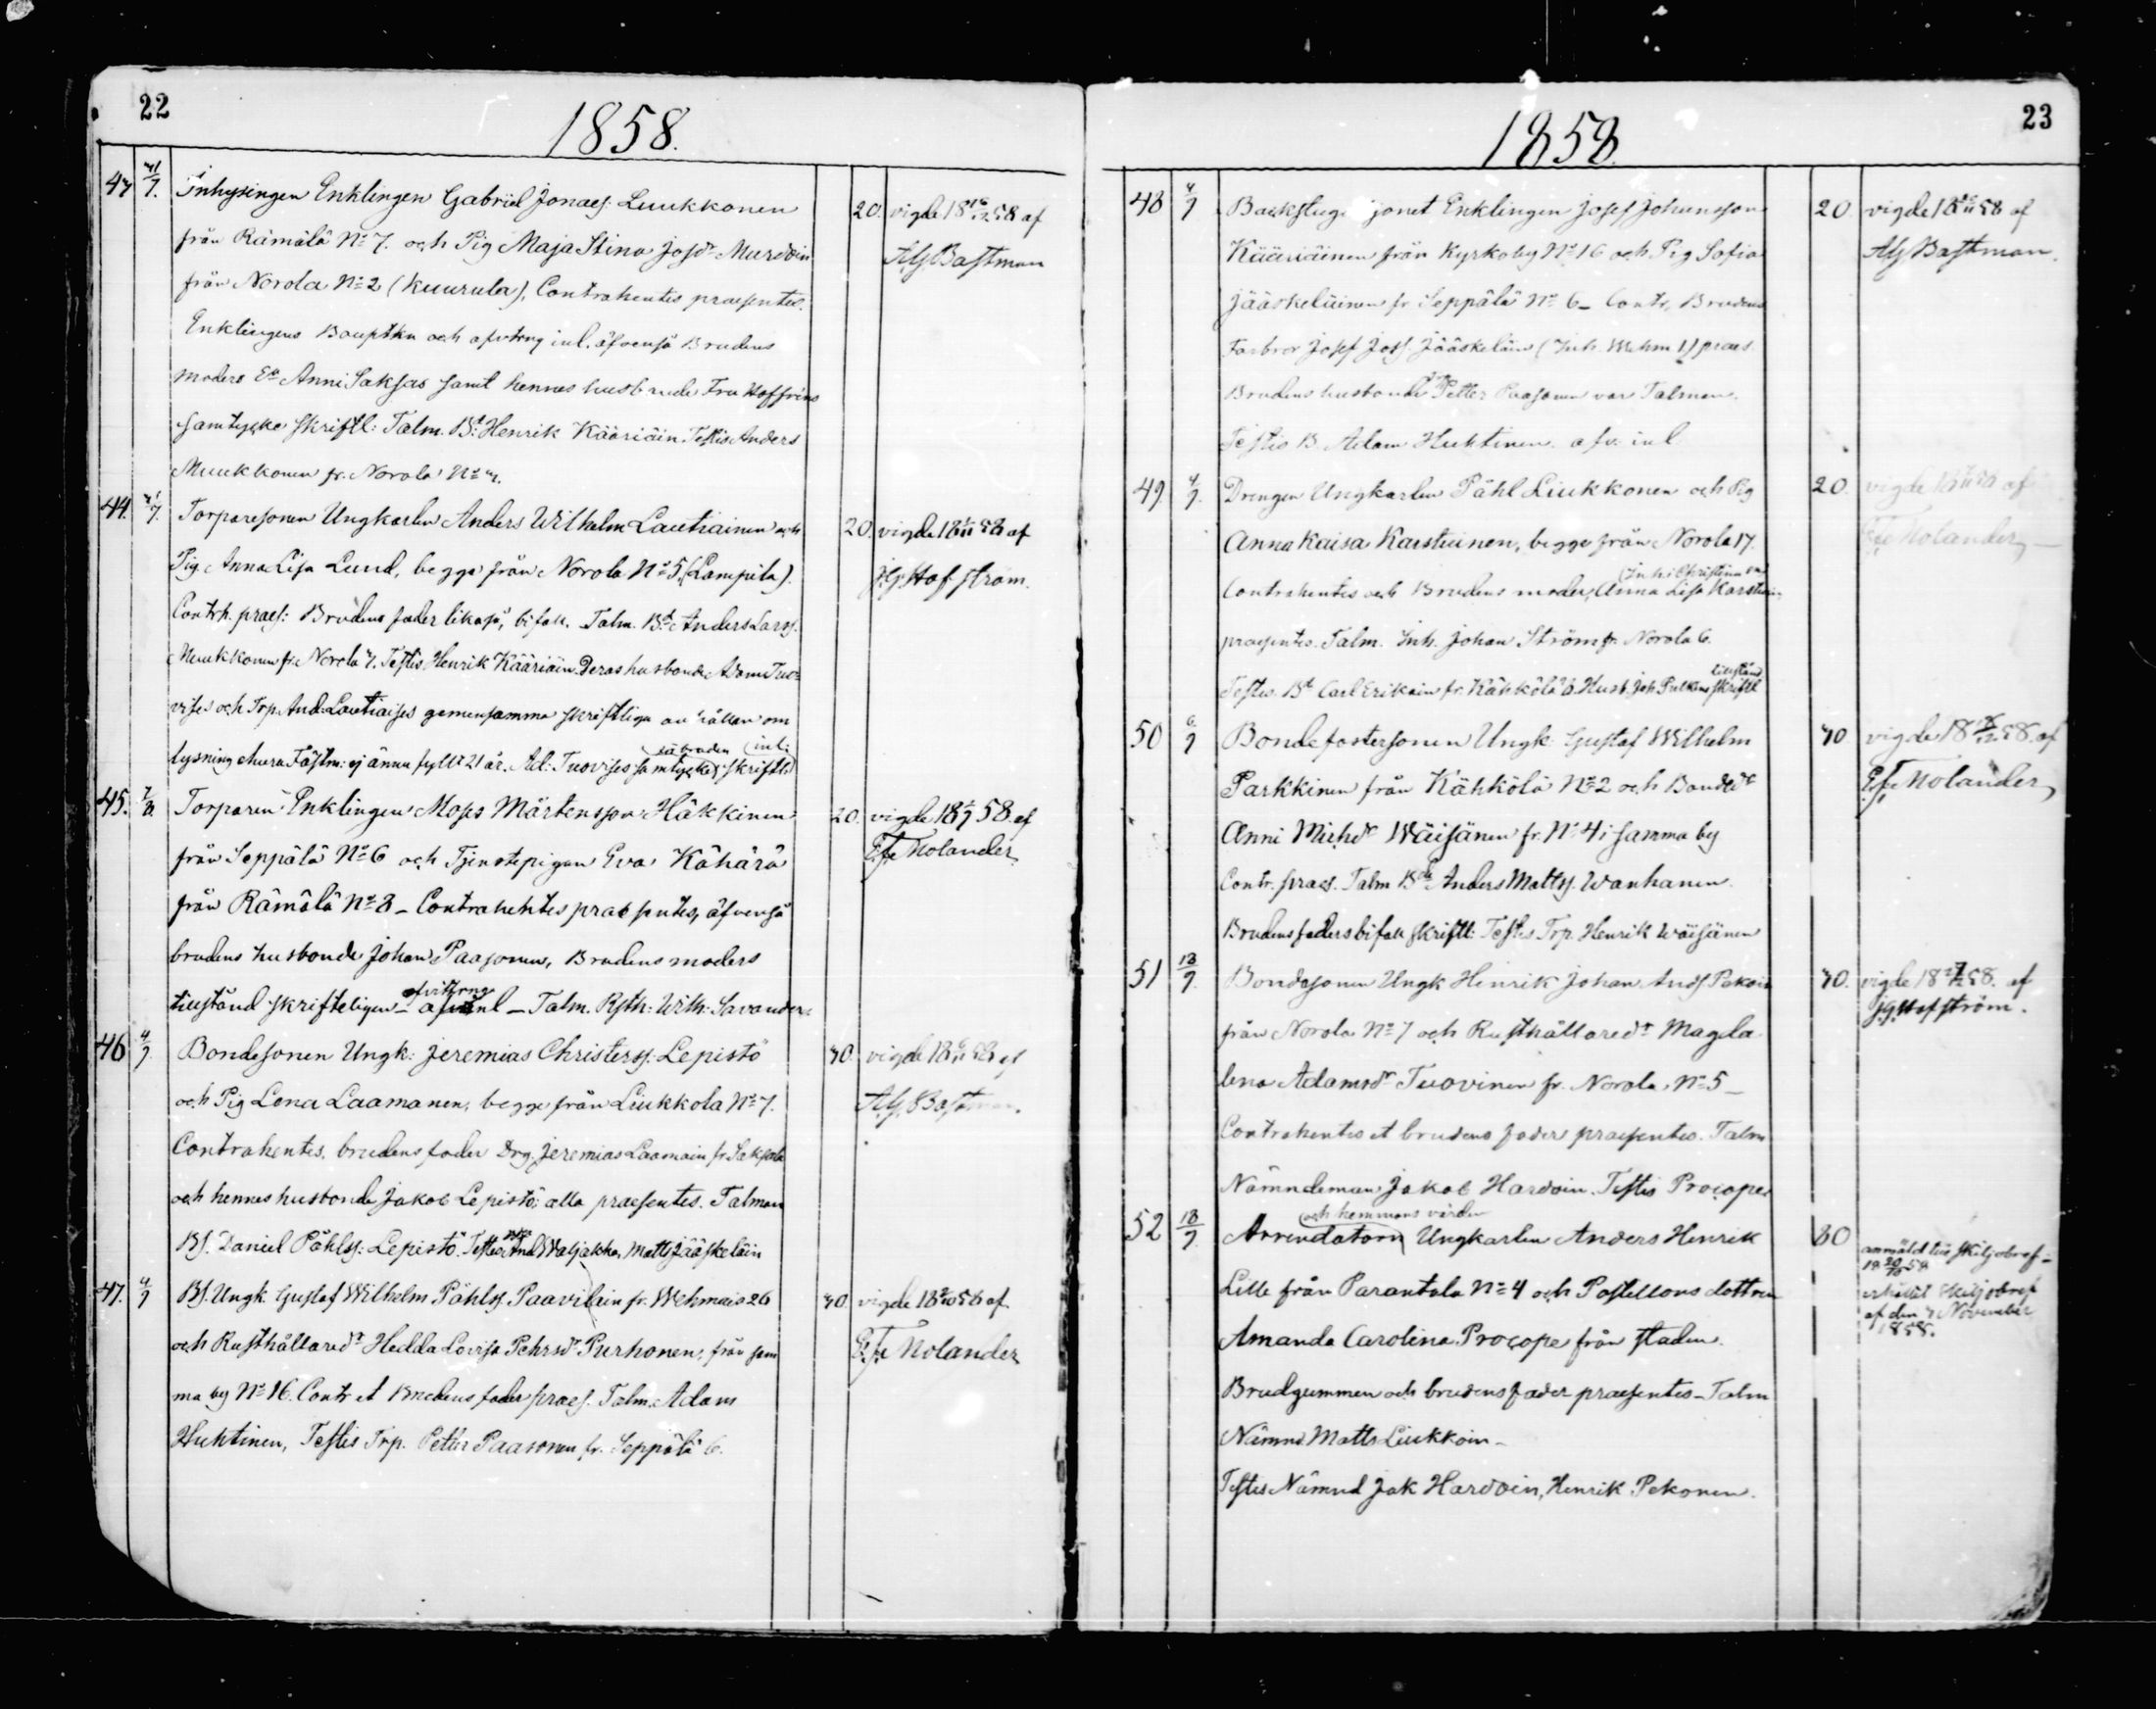 22
1858.
43 31/7. Inhysingen Enklingen Gabriel Jonaes. Luukkonen 20. vigde 18 58 af
från Rämälä No 7. och Pig Maja Stina Josdr Murdoin AG Bastman
från Norola No 2 (Kuurula), Contrahentes praesentes.
Enklingens Bouptkn och afvitrng inl. äfvenså Brudens
moders Ea Anni Saksas samt hennes husbonde Fru Hoffréns
samtycke skriftl: Talm. Bd: Henrik Kääriäin Testis Anders
Muukkonen fr. Norola No 7.
44. 31/7. Torparesonen Ungkarlen Anders Wilhelm Lautiainen och 20. vigde 18 58 af
Pig. Anna Lisa Lund, begge från Norola No 5. (Lampila). J.G. Hofström.
Contrh. praes: Brudens fader likaså, bifall. Talm. Bd Anders Larss.
Muukkonen fr. Norola 7. Testis Henrik Kääriäin. Deras husbonde Adam Tuo-
vises och Trp. And. Lautiaises gemensamma skriftliga anhållan om
(sårade (inl:
lysning ehuru Fästm: ej ännu fyllt 21 år. Ad: Tuovises samtycke skriftl.)
45. 7/8. Torparen Enklingen Moses Mårtensson Häkkinen 20. vigde 18 58. af
från Seppälä No 6 och Tjenstepigan Eva Kähärä E.Fr. Molander
från Rämälä No 8 - Contrahentes praesentes, äfvenså
brudens husbonde Johan Paasonen, Brudens moders
afvittrng
tillstånd skrifteligen - inl - Talm. Rsth: Wilh: Savander.
46 4/9 Bondesonen Ungk: Jeremias Christerss. Lepistö 30. vigde 18 58 af
och Pig Lena Laamanen, begge från Liukkola No 7. A.G. Bastman.
Contrahentes, brudens fader Drg. Jeremias Laamain fr. Saksala
och hennes husbonde Jakob Lepistö; alla praesentes. Talman
Bs. Daniel Påhlss: Lepistö. Testes And Waljakka, Matts Jääskeläin
47. 4/9 Bs. Ungk. Gustaf Wilhelm Påhlss. Paavilain fr. Wehmais 26 30 vigde 18 58 af
och Rusthållaredr Hedda Lovisa Pehrsdr Purhonen, från sam E.Fr. Molander
ma by No 16. Contr et Brudens fader praes. Talm. Adam
Huhtinen, Testis Trp. Petter Paasonen fr. Seppälä 6.
23
1858.
48 4/9 Backstugusonet Enklingen Josef Johansson 20. vigde 18 58 af
Kääriäinen från Kyrkoby No 16 och Pig Sofia AG Bastman.
Jääskeläinen fr Seppälä No 6 - Contr. Brudens
Farbror Josef Joss Jääskeläin (Inh. Wehm 1) praes.
Brudens husbonde Petter Paasonen var Talman.
Testis B Adam Huhtinen. afv. inl
49 4/9. Drengen Ungkarlen Påhl Liukkonen och Pig 20. vigde 18 58 af
Anna Kaisa Karstuinen, begge från Norola 17. E.Fr. Molander
(Inh: Christina
Contrahentes och Brudens moder, Anna Lisa Karstuin
praesentes. Talm. Inh. Johan Ström fr. Norola 6.
tillstånd
Testes. Bd Carl Erikain fr. Kähkölä 6. Husb. Joh Pulkin skriftl
50 6/9 Bondefostersonen Ungk: Gustaf Wilhelm 30 vigde 18 58. af
Parkkinen från Kähkölä No 2 och Bondedr E.Fr. Molander
Anni Michdr Wäisänen fr. No 4 i samma by
Contr. praes. Talm Bd Anders Matts. Wanhanen.
Brudens faders bifall skriftl: Testis Trp. Henrik Wäisänen
51 13/9. Bondesonen Ungk Hinrik Johan Ands Pekoin 30. vigde 18 58. af
från Norola No 7 och Rusthållaredr Magda J.G. Hofström.
lena Adamsdr Tuovinen fr. Norola No 5 -
Contrahentes et brudens fader praesentes. Talm
Nämndeman Jakob Hardoin. Testis Procope.
(och hemmans värden
52 18/9 Arrendatorn Ungkarlen Anders Henrik 80
Lille från Parantala No 4 och Postillons dottren
Amanda Carolina Procope från staden.
Brudgummen och brudens fader praesentes - Talm
Nämnd. Matts Liukkoin -
Testes Nämnd Jak Hardoin, Henrik Pekonen.
anmäld till skiljobref -
18 20/10 58
erhållit skiljobref
af den 3 November
1858.